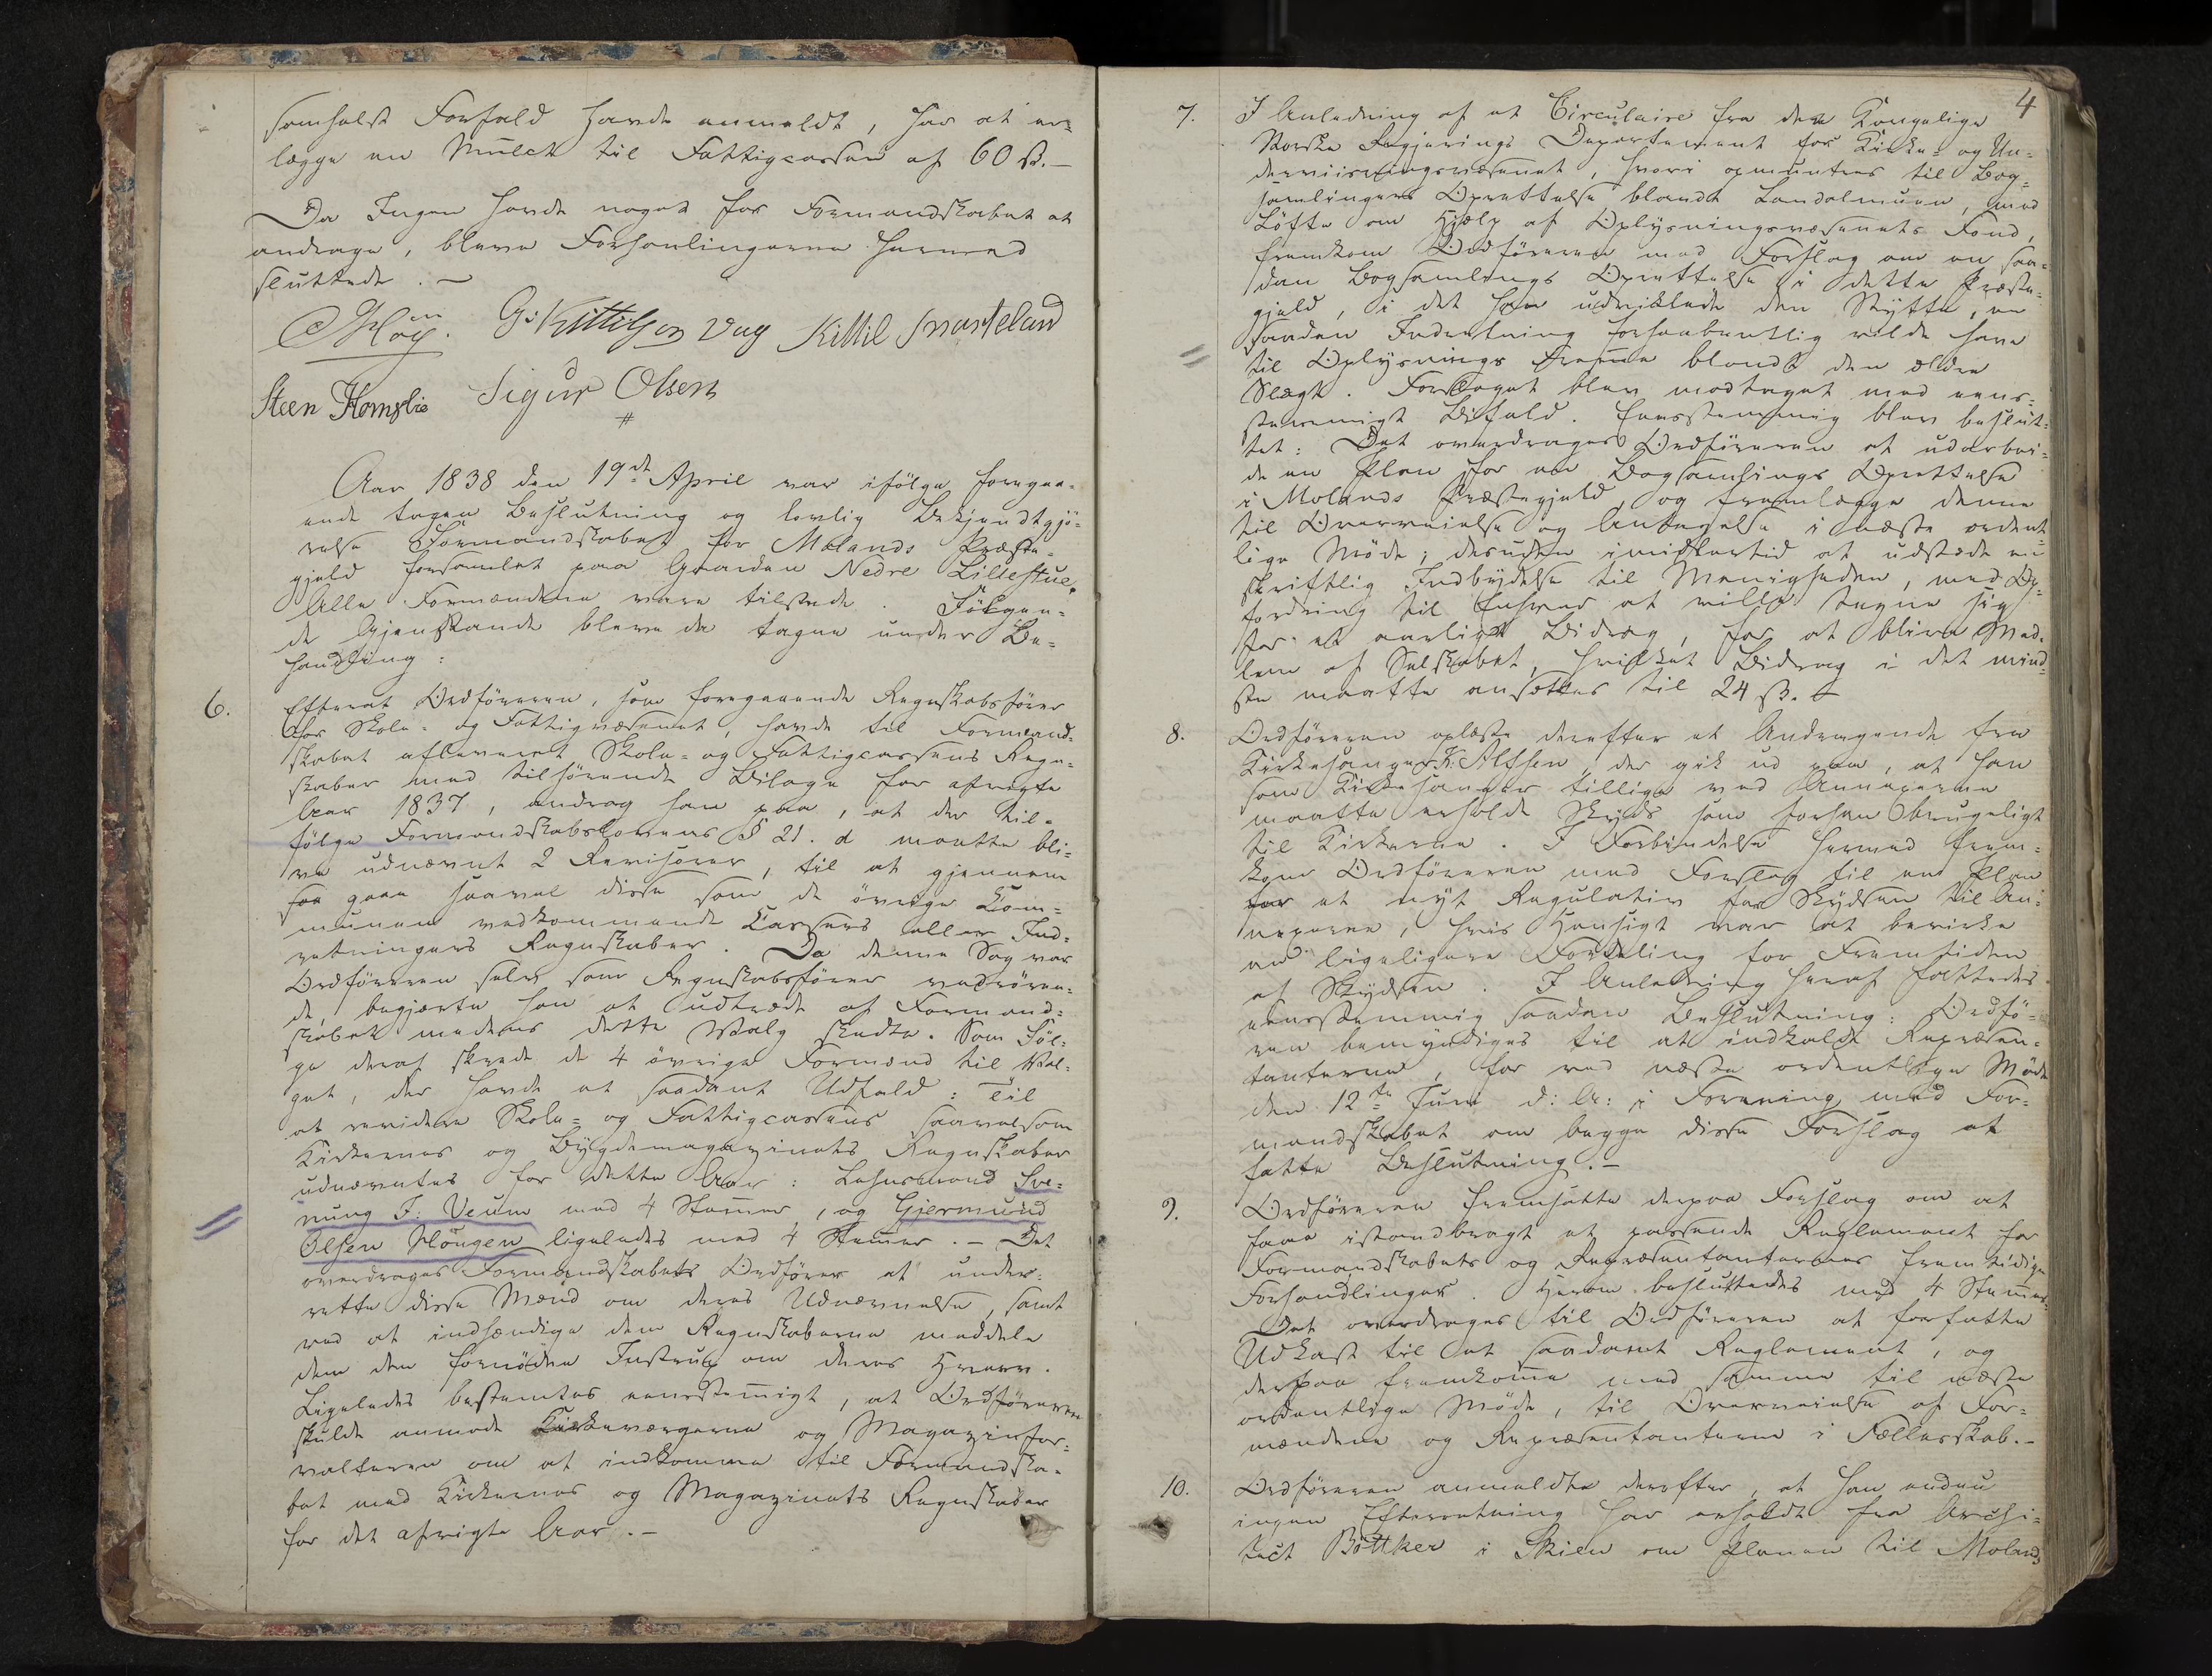 somhelst Forfald havde anmeldt, har at er-
lægge en Mulct til Fattigcassen af 60 ß.-
Da Ingen havde noget for Formandskabet at
andrage, bleve Forhandlingerne hermed
sluttede. -
G: Kittilsen Vaa Kittil Svarteland
Steen Homslie Sigur Olsen
#
Aar 1838 den 19de April var ifölge foregaa-
ende tagen Beslutning og lovlig Bekjendtgjö-
relse Formandskabet for Molands Præste-
gjeld forsamlet paa Gaarden Nedre Lillestue.
Alle Formændene vare tilstede. Fölgen-
de Gjenstande bleve da tagne under Be-
handling:
6. Efterat Ordföreren, som foregaaende Regnskabsförer
for Skole- og Fattigvæsenet, havde til Formand-
skabet afleveret Skole- og Fattigcassens Regn-
skaber med tilhörende Bilage for afvigte
Aar 1837, androg han paa, at der til-
fölge Formandskabslovens § 21. d maatte bli-
ve udnævnt 2 Revisorer, til at gjennem
gaae saavel disse som de övrige Com-
munen vedkommende Cassers eller Ind-
retningers Regnskaber. Da denne Sag var
Ordföreren selv som Regnskabsförer vedrören-
de, begjærte han at udtræde af Formand-
skabet medens dette Valg skedte. Som Föl-
ge deraf skrede de 4 övrige Formænd til Val-
get, der havde et saadant Udfald: Til
at revidere Skole- og Fattigcassens saavelsom
Kirkernes og Bygdemagazinets Regnskaber
udnævntes for dette Aar: Lehnsmand Sve-
nung J: Veum med 4 Stemmer, og Gjermund
Olsen Hougen ligeledes med 4 Stemer. - Det
overdroges Formandskabets Ordförer at under-
rette disse Mænd om deres Udnævnelse, samt
ved at indhændige dem Regnskaberne meddele
dem den fornödne Instrux om deres Hverv.
Ligeledes bestemtes eensstemigt, at Ordföreren
skulde anmode Kirkeværgerne og Magazinfor-
valteren om at indkomme til Formandska-
bet med Kirkernes og Magazinets Regnskaber
for det afvigte Aar. -
4
7. I Anledning af et Circulaire fra den Kongelige
Norske Regjerings Departement for Kirke- og Un-
derviisningsvæsenet, hvori opmuntres til Bog-
samlingers Oprettelse blandt Landalmuen, med
Löfte om Hjælp af Oplysningsvæsenets Fond,
fremkom Ordföreren med Forslag om en saa-
dan Bogsamlings Oprettelse i dette Præste-
gjeld, i det han udviklede den Nytte, en
saadan Indretning forhaabentlig vilde have
til Oplysnings Fremme blandt den ældre
Slægt. Forslaget blev modtaget med eens-
stemmigt Bifald. Eensstemmig blev beslut-
tet: Det overdrages Ordföreren at udarbei-
de en Plan for en Bogsamlings Oprettelse
i Molands Præstegjeld, og fremlægge denne
til Overveielse og Antagelse i næste ordent-
lige Möde; desuden imidlertid at udstæde en
skriftlig Indbydelse til Menigheden, med Op-
fordring til Enhver at ville tegne sig
for et aarligt Bidrag, for at blive Med-
lem af Selskabet, hvilket Bidrag i det mind-
ste maatte ansættes til 24 ß. -
8. Ordföreren oplæste derefter et Andragende fra
Kirkesanger K: Alfsen, der gik ud paa, at han
som Kirkesanger tillige ved Annexerne
maatte erholde Skyds som forhen brugeligt
til Kirkerne. I Forbindelse hermed frem-
kom Ordföreren med Forslag til en Plan
for et nyt Regulativ for Skydsen til An-
nexerne, hvis Hensigt var at bevirke
en ligeligere Fordeling for Fremtiden
af Skydsen. I Anledning heraf fattedes
eensstemmig saadan Beslutning: Ordfö-
ren bemyndiges til at indkalde Repræsen-
tanterne, for ved næste ordentlige Möde
den 12te Juni d: A: i Forening med For-
mandskabet om begge disse Forslag at
fatte Beslutning. -
9. Ordföreren fremsatte derpaa Forslag om at
faae istandbragt et passende Reglement for
Formandskabets og Repræsentanternes fremtidige
Forhandlinger. Herom besluttedes med 4 Stemer:
Det overdrages til Ordföreren at forfatte
Udkast til et saadant Reglement, og
derpaa fremkomme med samme til næste
ordentlige Möde, til Overveielse af For-
mændene og Repræsentanterne i Fællesskab.-
10. Ordföreren anmeldte derefter, at han endnu
ingen Efterretning har erholdt fra Archi-
tect Böttker i Skien om Planen til Molands